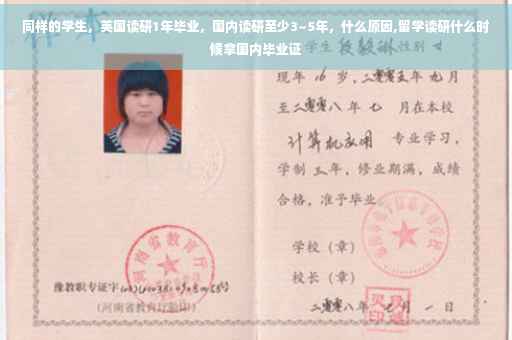 同样的学生，英国读研1年毕业，国内读研至少3~5年，什么原因,留学读研什么时
候拿国内毕业证
学生 性别 女
现年 16 岁，二零零五年 九 月
至二零零八 年 七 月在本校
计算机应用 专业学习，
学制 三 年，修业期满，成绩
合格，准予毕业
学校（章）
校长（章）
二零零八年 七 月 一 日
河南省教育厅
豫教职专证字
（河南省教育厅验印）